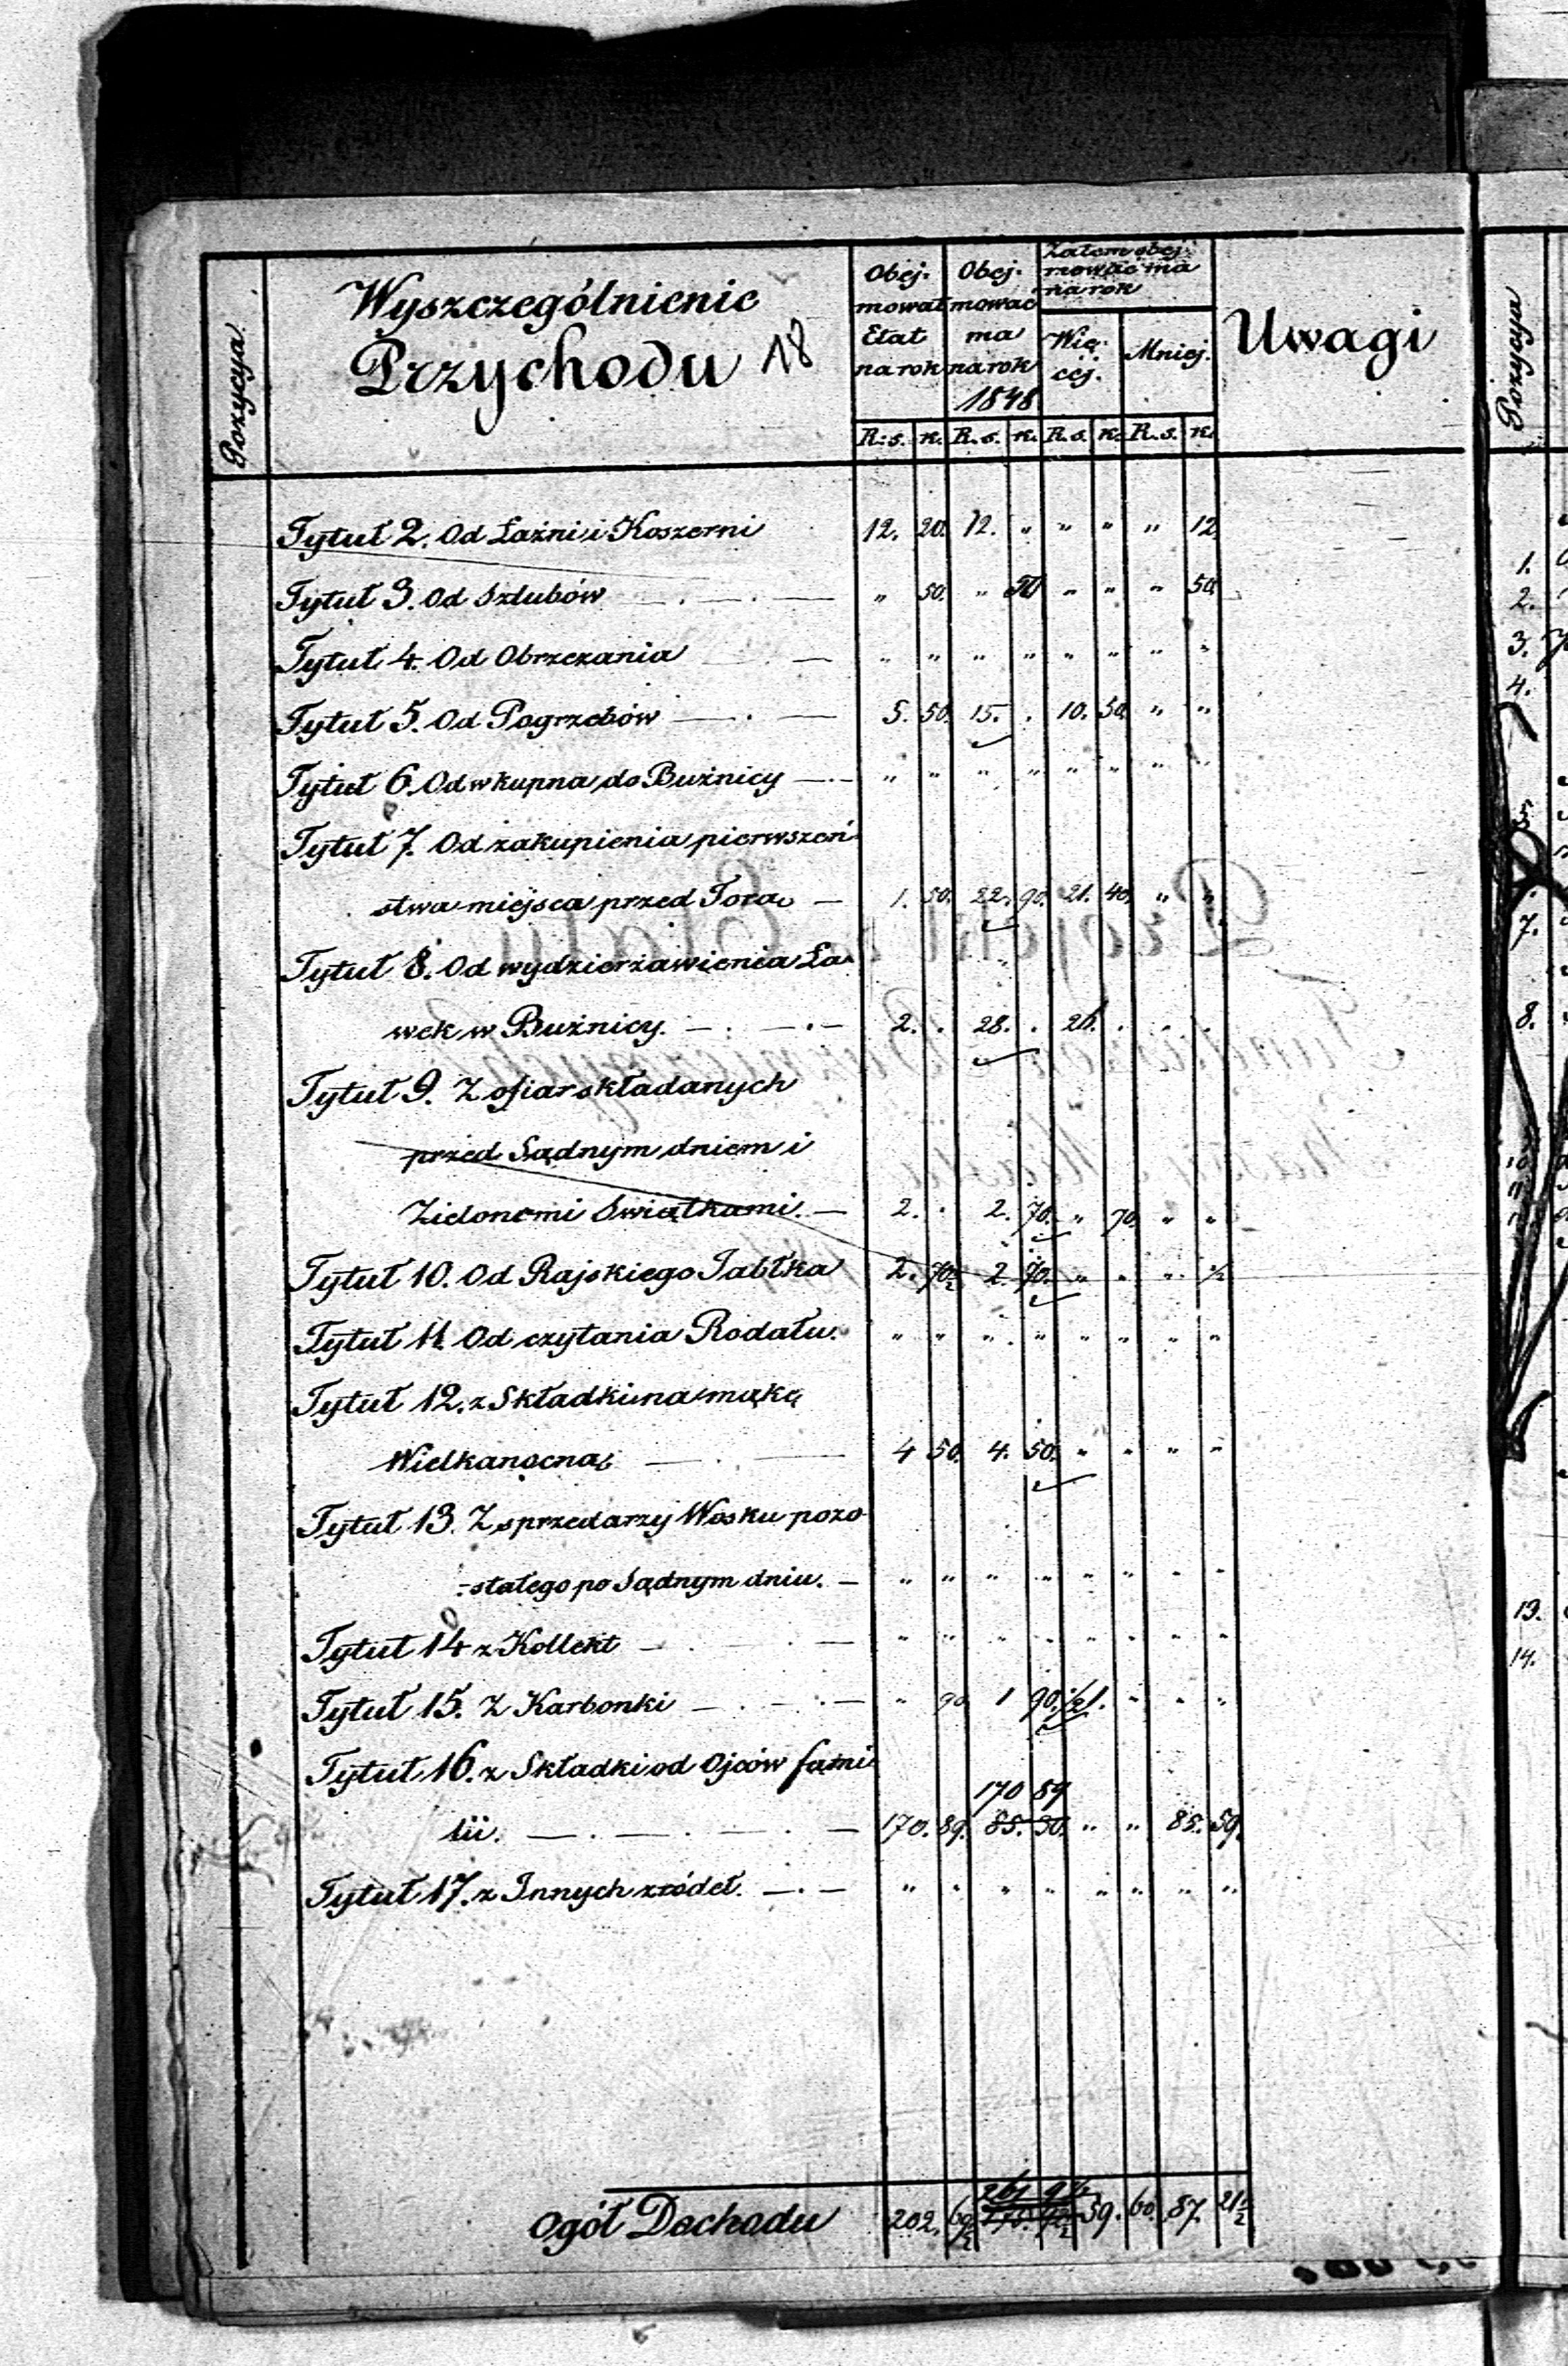 Pozycya
Wyszczególnienie
Przychodu 18
Obej-
mował
Etat
na rok
Obej-
mować
ma
na rok
1848
Zatem obej-
mować ma
na rok
Wię-
cej.
Mniej.
Uwagi
R. s. k. R. s. k. R. s. k. R. s. k.
Tytuł 2. Od Łaźni i Koszerni 12. 20. 12. " " " " 12
Tytuł 3. Od Szlubów — . — . — " 50. " " " " 50
Tytuł 4. Od Obrzezania — " " " " " " " "
Tytuł 5. Od Pogrzebów — . — 5. 50. 15. . 10. 50. " "
Tytuł 6. Od wkupna do Bużnicy — . — " " " " " " " "
Tytuł 7. Od zakupienia pierwszeń-
stwa miejsca przed Torą — 1. 50. 22. 90. 21. 40. " "
Tytuł 8. Od wydzierżawienia Ła-
wek w Bużnicy. — . — . — 2. . 28. . 26. . . .
Tytuł 9. Z ofiar składanych
przed Sądnym dniem i
Zielonemi Swiątkami. — 2. . 2. 70. " 70. " "
Tytuł 10. Od Rajskiego Jabłka 2. 70½ 2. 70. " " " ½
Tytuł 11. Od czytania Rodału. " " " " " " " "
Tytuł 12. z Składki na mąkę
Wielkanocną — . — 4 50. 4. 50. " " " "
Tytuł 13. Z sprzedarzy Wosku pozo
-stałego po Sądnym dniu. — " " " " " " " "
Tytuł 14 z Kollekt — . — . — " " " " " " " "
Tytuł 15. Z Karbonki — . — . — " 90 1 90. ½ 1. " " "
Tytuł 16. z Składki od Ojców fami
170 89
lii. — . — . — . — 170. 89. 85. 30. " " 85. 59.
Tytuł 17. z Innych zródeł. — . — " " " " " " " "
261
Ogół Dochodu 202. 69½ 59. 60. 87. 21½
Pozycya
1.
2.
3.
4.
5.
7.
8.
10.
11.
13.
14.